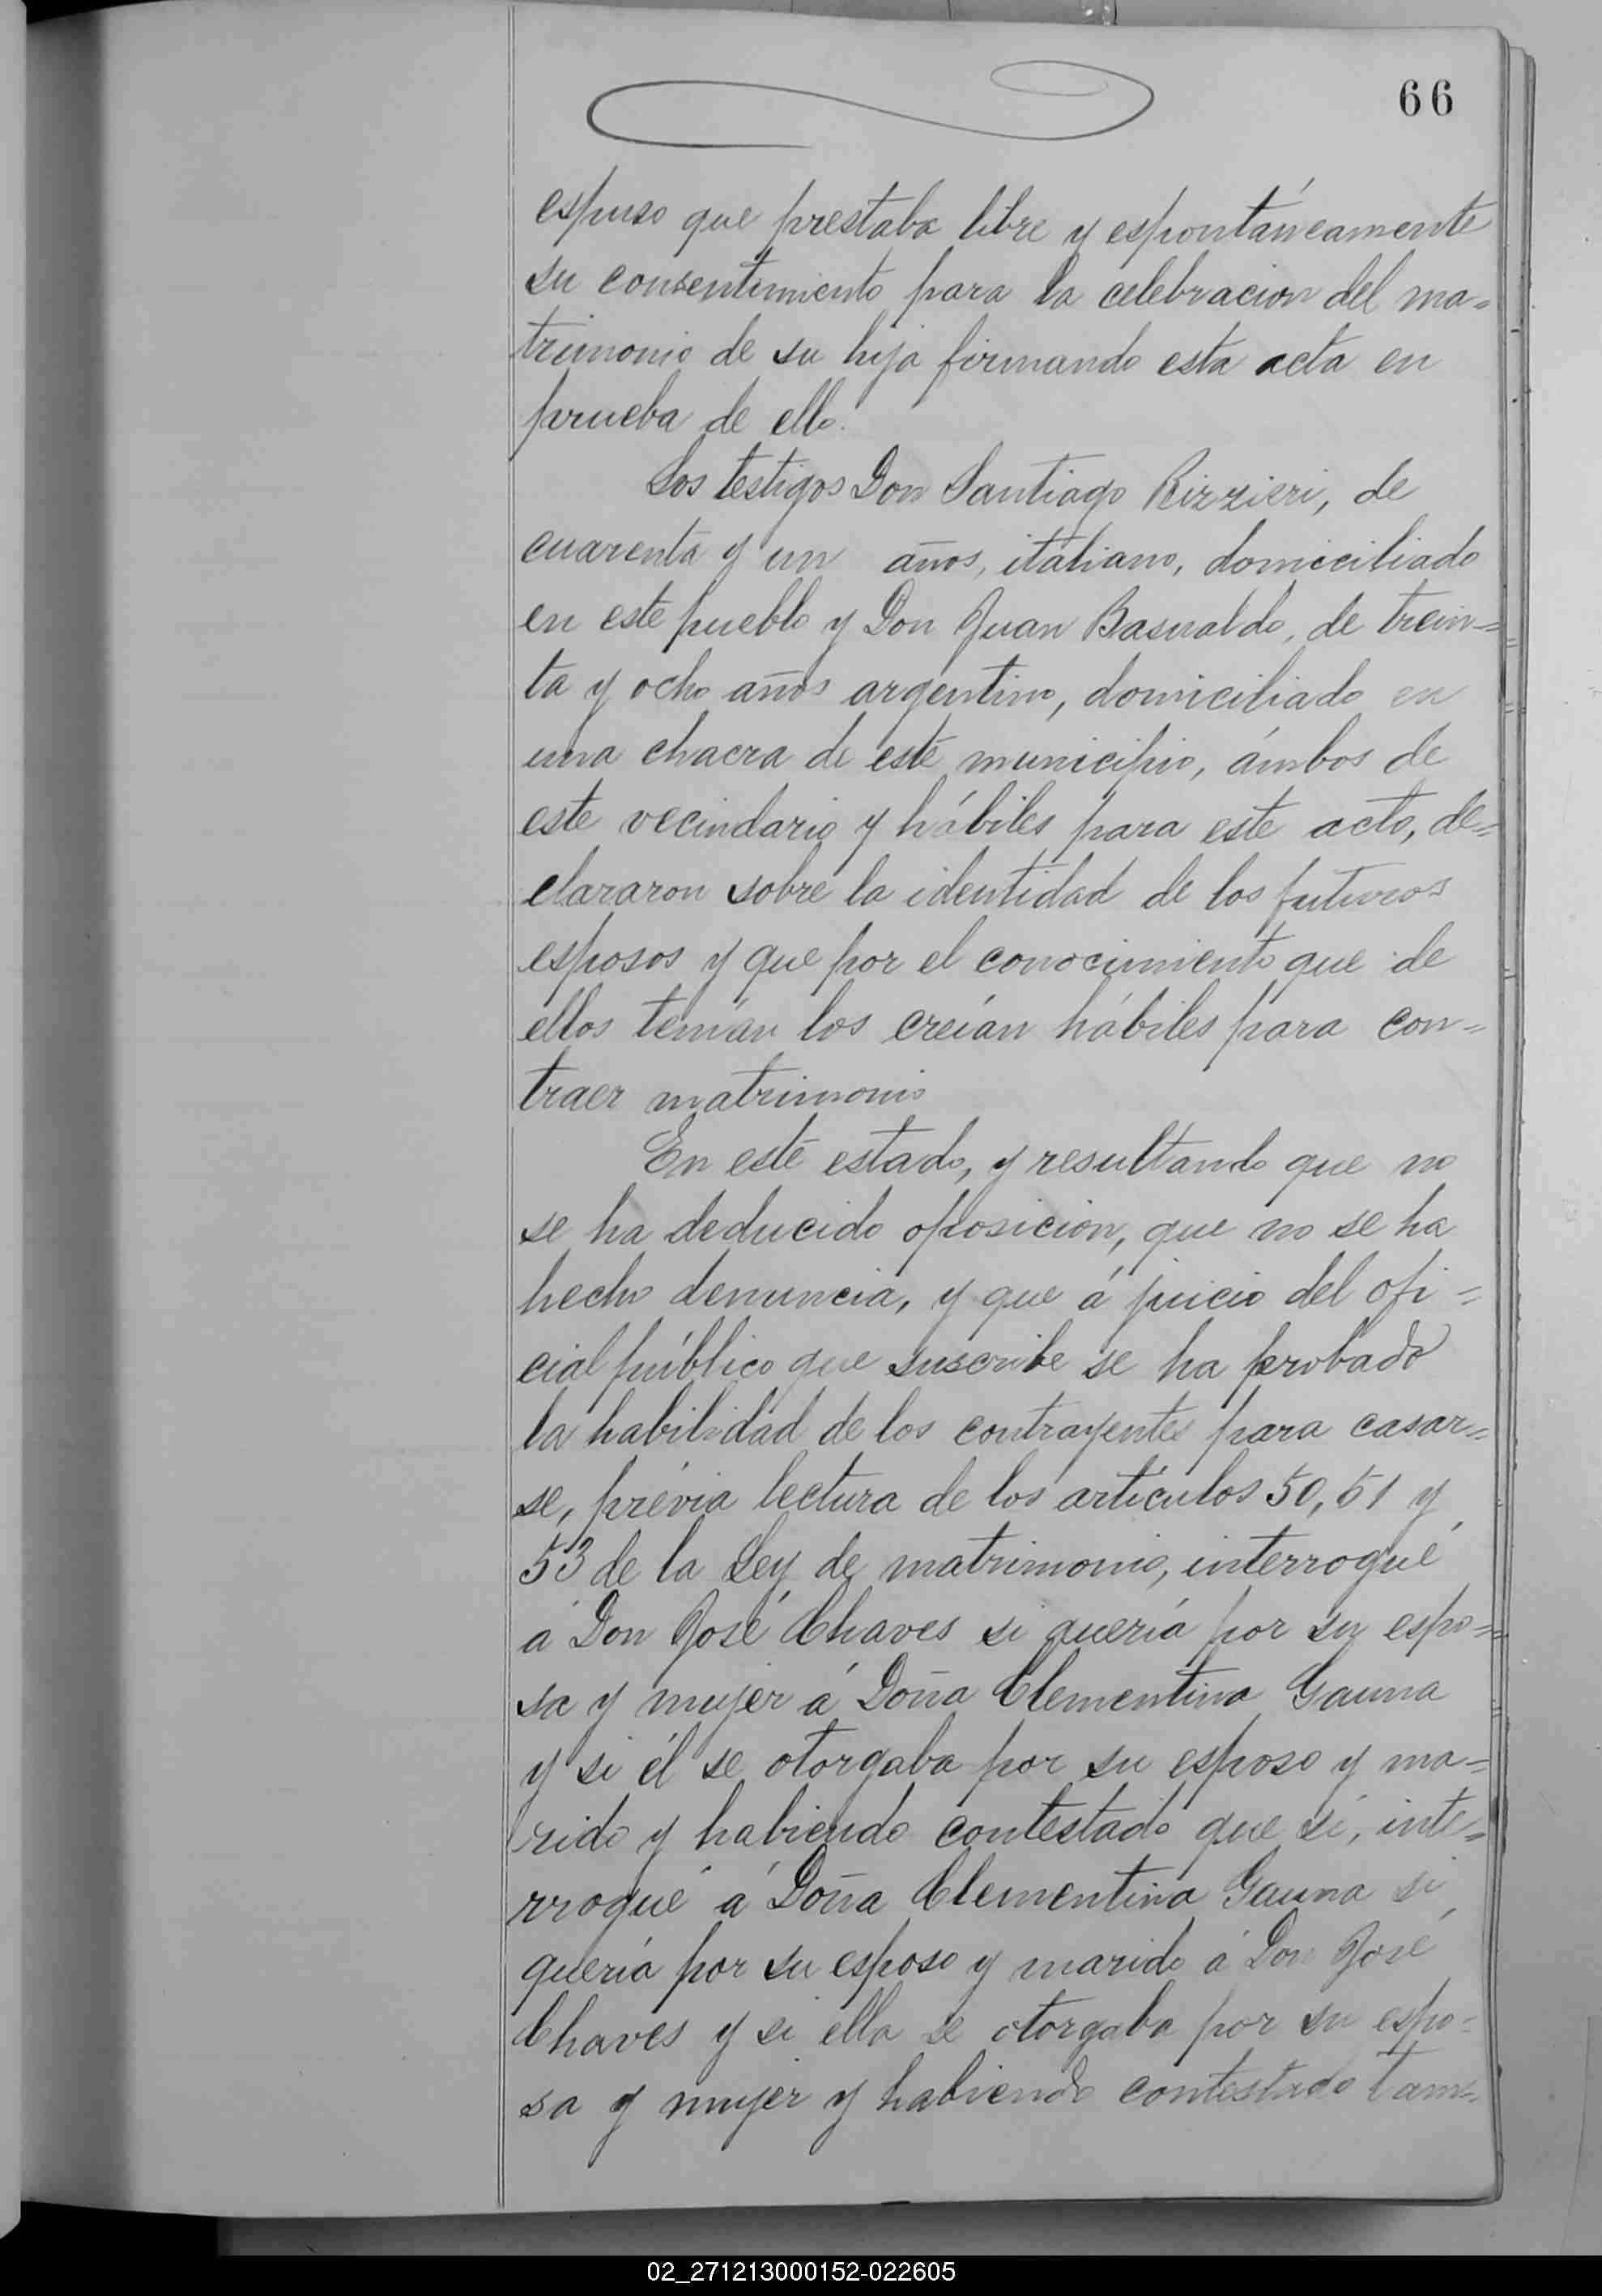 66
espuso que prestaba libre y espontáneamente
su consentimiento para la celebracion del ma=
trimonio de su hija firmando esta acta en
prueba de ello.
Los testigos Don Santiago Rizzieri, de
cuarenta y un años, italiano, domiciliado
en este pueblo y Don Juan Basualdo, de trein=
ta y ocho años argentino, domiciliado en
una chacra de este municipio, ámbos de
este vecindario y hábiles para este acto, de=
clararon sobre la identidad de los futuros
esposos y que por el conocimiento que de
ellos tenían los creían hábiles para con=
traer matrimonio
En este estado, y resultando que no
se ha deducido oposicion, que no se ha
hecho denuncia, y que á juicio del ofi=
cial público que suscribe se ha probado
la habilidad de los contrayentes para casar=
se, prévia lectura de los artículos 50, 51 y
53 de la Ley de matrimonio, interrogué
á Don José Chaves si quería por su espo=
sa y mujer á Doña Clementina Gauna
y si él se otorgaba por su esposo y ma=
rido y habiendo contestado que sí, inte=
rrogué á Doña Clementina Gauna si
quería por su esposo y marido á Don José
Chaves y si ella se otorgaba por su espo=
sa y mujer y habiendo contestado tam=
02_271213000152-022605